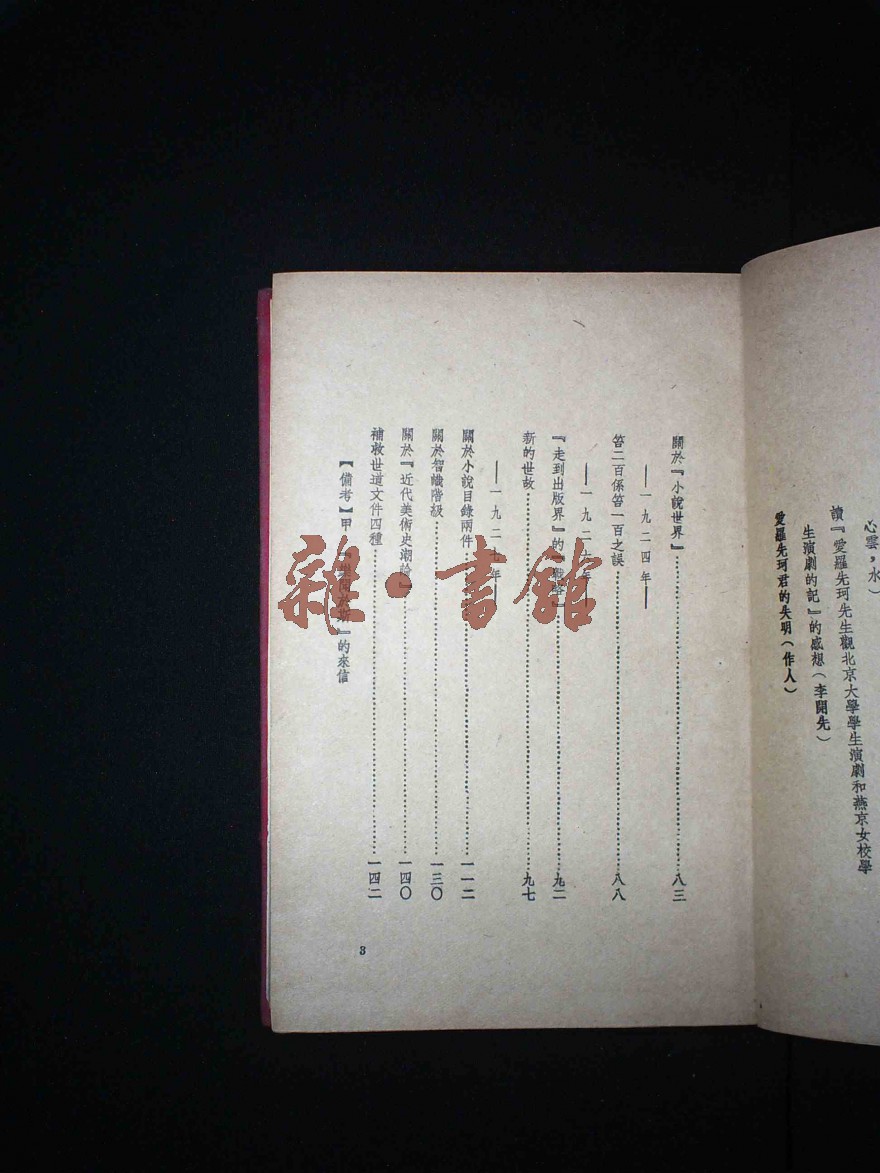 心雲，水）
讀『愛羅先珂先生觀北京大學學生演劇和燕京女校學
生演劇的記』的感想（李開先）
愛羅先珂君的失明（作人）
關於『小說世界』……八三
——一九二四年——
答二百係答一百之誤……八八
——一九二六年——
『走到出版界』的『』……九二
新的世故……九七
——一九二七年——
關於小說目錄兩件……一一二
關於智識階級……一三〇
關於『近代美術史潮論』……一四〇
補救世道文件四種……一四二
【備考】甲『於斯』的來信
3
雜·書館